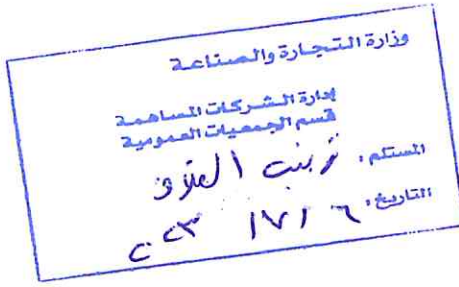 وزارة التجارة والصناعة
إدارة الشركات المساهمة
قسم الجمعيات العمومية
المستلم، زينب
التاريخ،